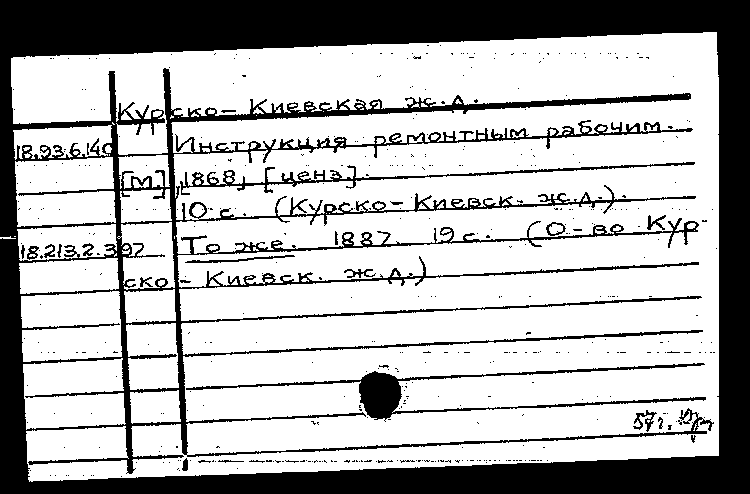 Курско-Киевская ж.д.
18.93.6.140 Инструкция ремонтным рабочим.
[М.], 1868, [ценз].
10 с. (Курско-Киевск. ж.д.).
18.213.2.397 То же. 1887. 19 с. (О-во Кур-
ско-Киевск. ж.д.)
57г.